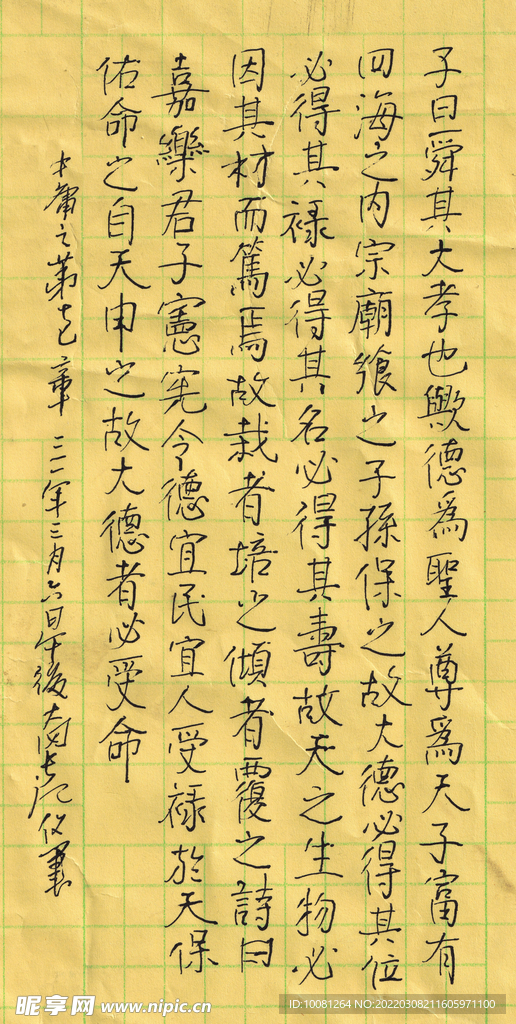 子曰舜其大孝也歟德爲聖人尊爲天子富有
四海之内宗廟飨之子孫保之故大德必得其位
必得其禄必得其名必得其壽故天之生物必
因其材而篤焉故栽者培之傾者覆之詩曰
嘉樂君子憲憲令德宜民宜人受禄於天保
佑命之自天申之故大德者必受命
中庸之第十七章 二〇二二年三月六日午後
昵享网 www.nipic.cn
ID:10081264 NO:20220308211605971100